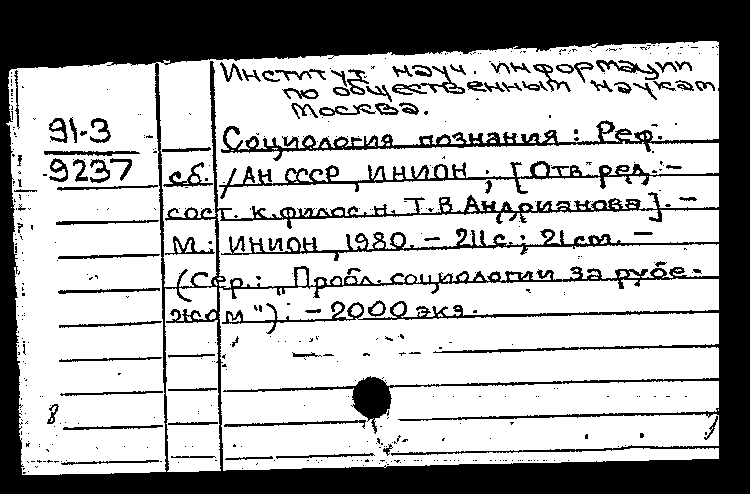 Институт науч. информации
по общественным наукам.
Москва.
91-3
9237
Социология познания : Реф.
сб. / АН СССР, ИНИОН ; [Отв. ред. -
сост. к. филос. н. Т. В. Андрианова]. -
М.: ИНИОН, 1980. - 211 с.; 21 см. -
(Сер.: „Пробл. социологии за рубе-
жом“): - 2000 экз.
8